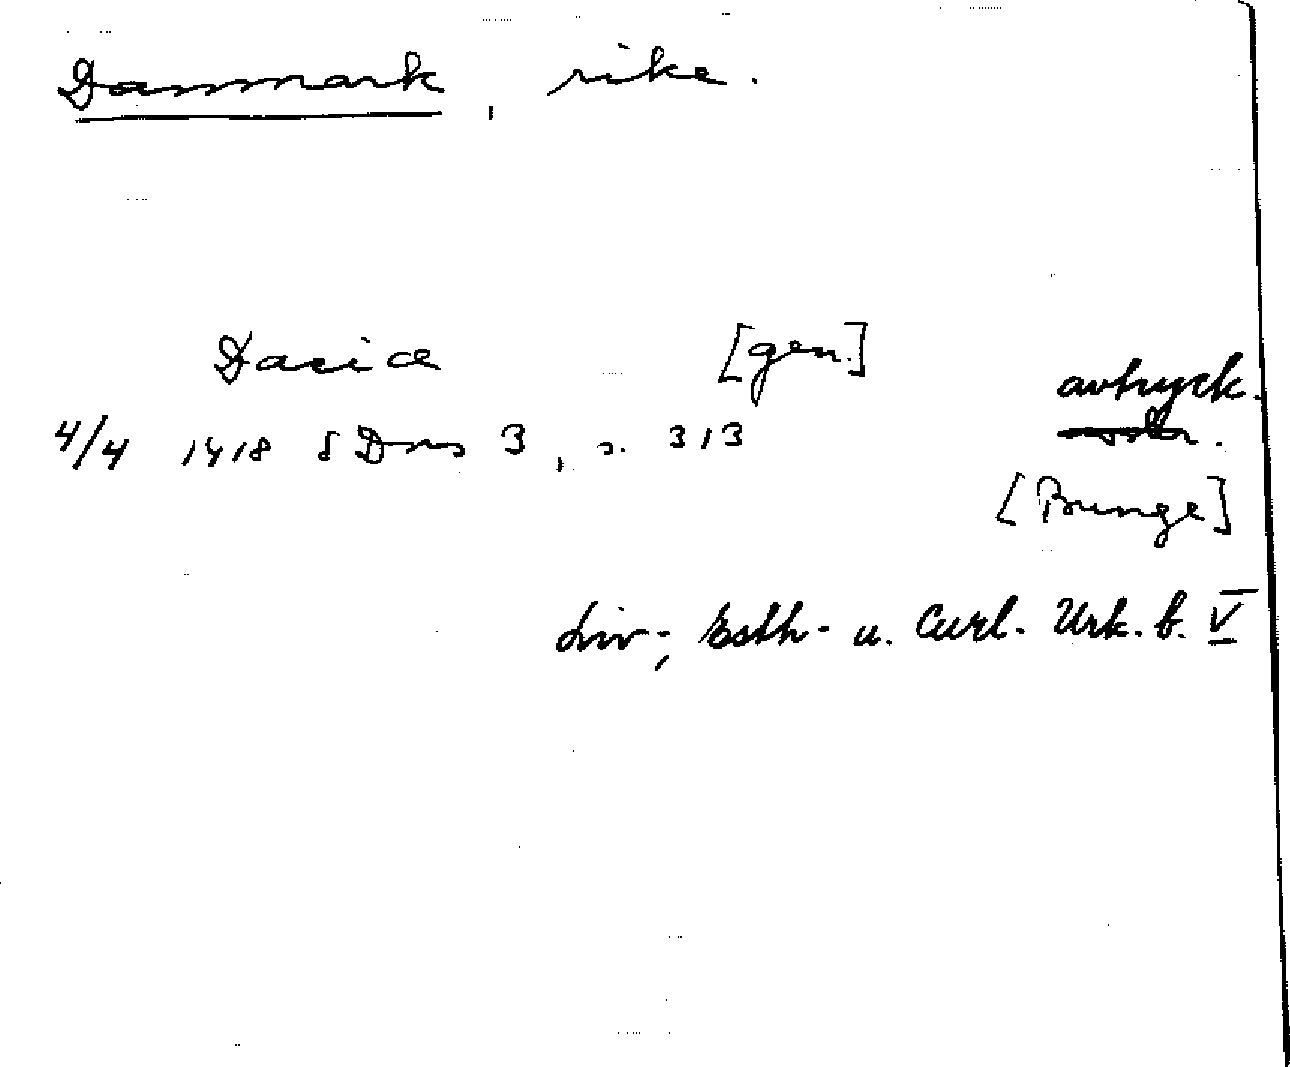 Danmark, rike.
Dacie [gen.]
avtryck.
4/4 1418 SDns 3, s. 313
[Bunge]
Liv-, Esth- u. Curl. Urk. b. V